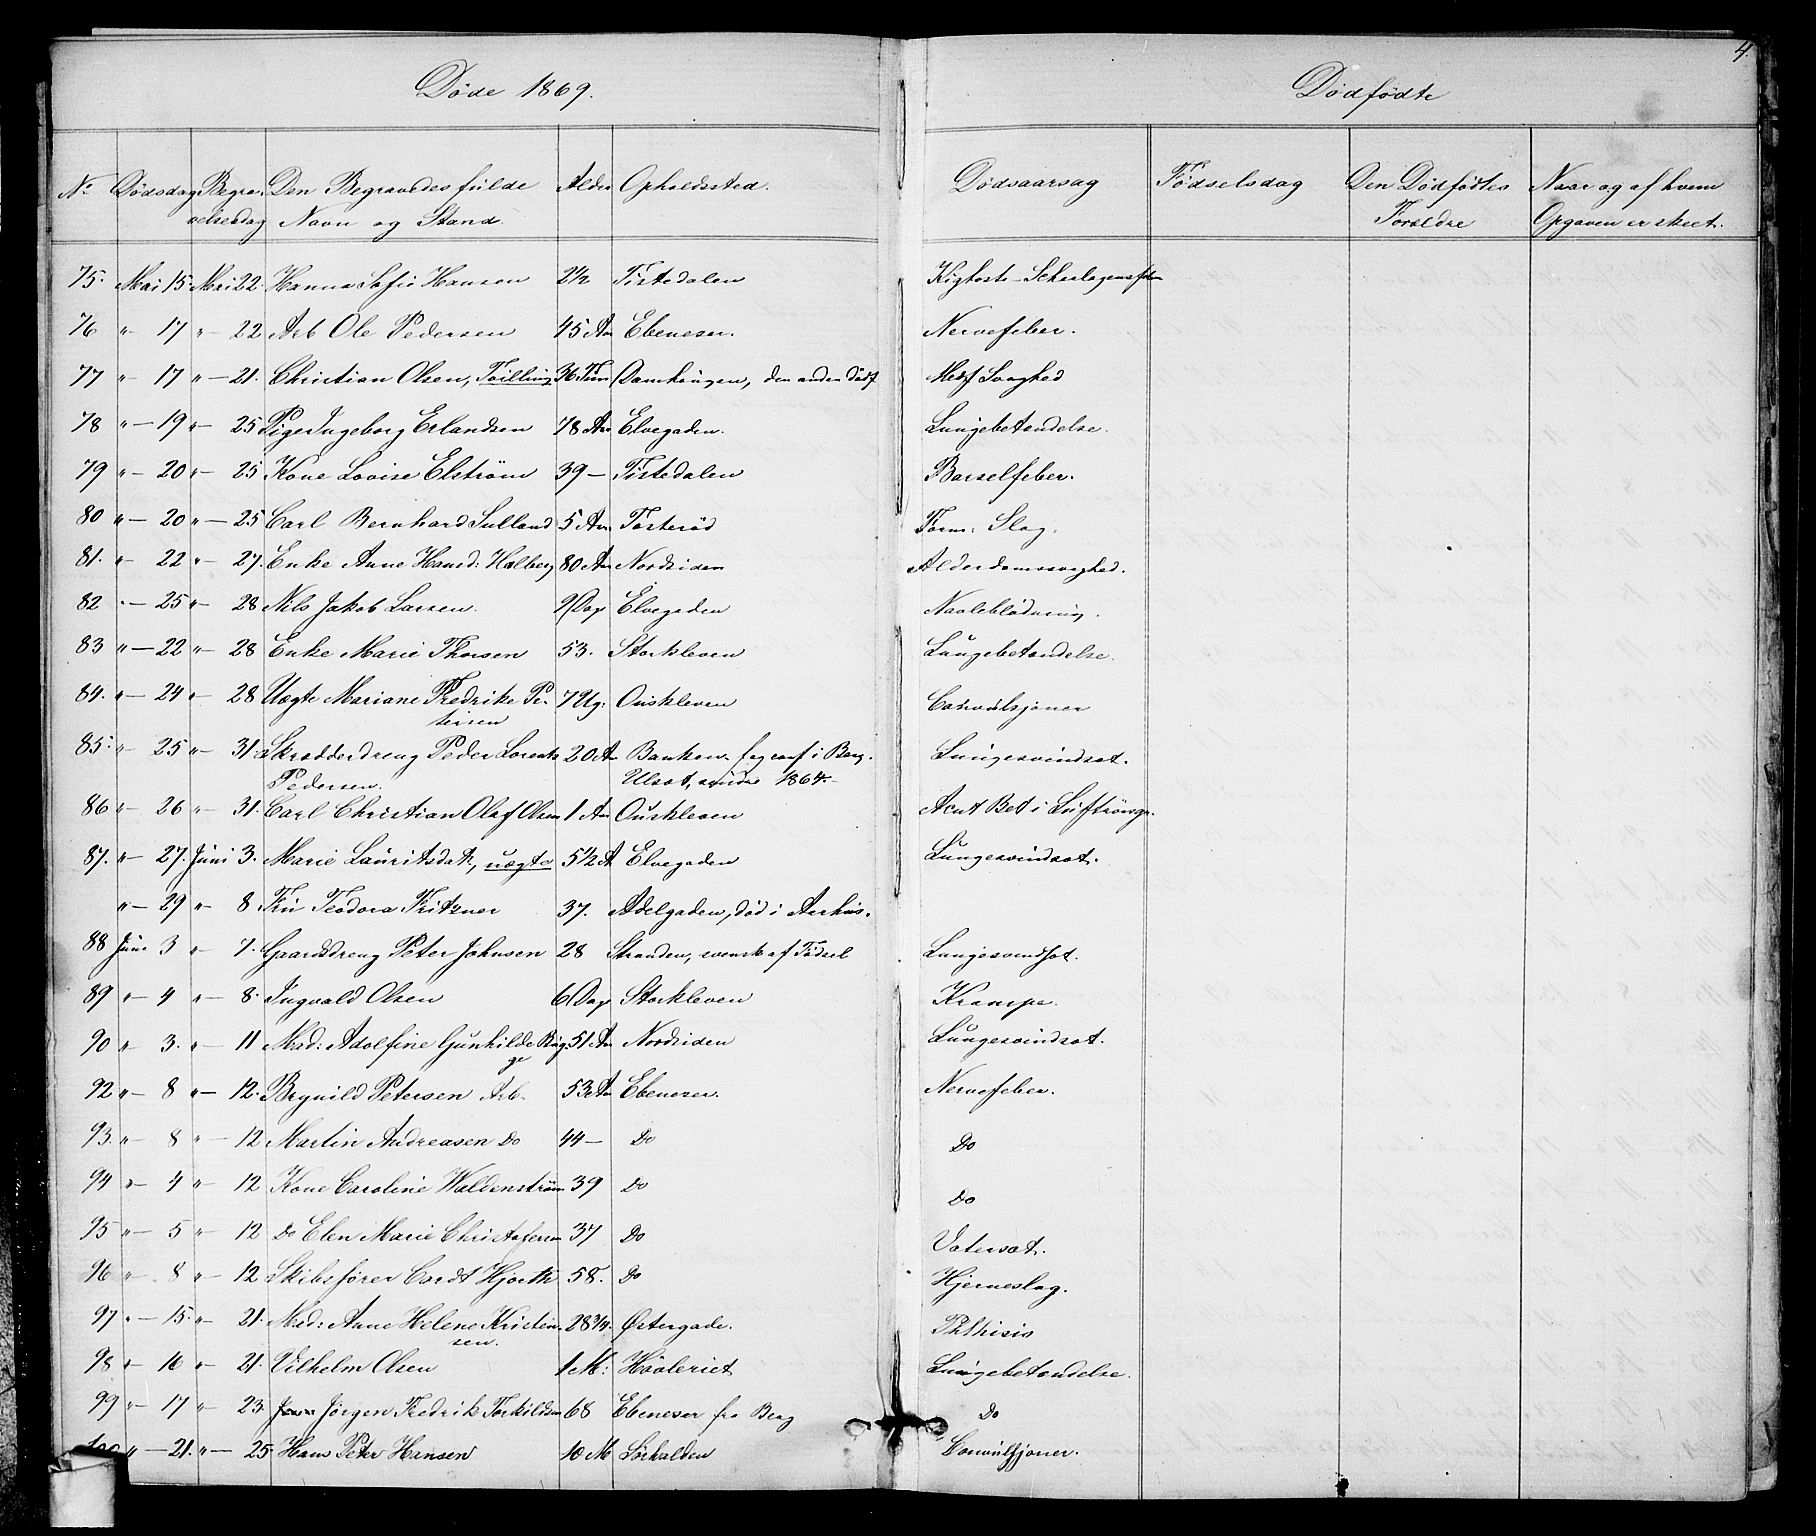 4.
Døde 1869. Dødfødte
No Dødsdag Begravelsesdag Den Begravedes fulde Navn og Stand. Alder Opholdssted. Dødsaarsag Fødselsdag Den Dødfødtes Forældre Naar og af hvem Opgaven er skeet.
75. Mai 15 Mai 22. Hanna Sofie Hansen 2½ Tistedalen Kighoste
76 " 17 " 22 Arb Ole Pedersen 45 Aar Ebeneser. Nervefeber.
77 " 17 " 21. Christian Olsen, Tvilling 36 Tim Damhaugen, den anden dødf Medf Svaghed
78 " 19 " 25 Pige Ingeborg Erlandsen 78 Aar Elvegaden. Lungebetændelse.
79 " 20 " 25 Kone Lovise Elström 39 — Tistedalen Barselfeber.
80 " 20 " 25 Carl Bernhard Sulland 5 Aar Tosterød Form: Slag.
81. " 22 " 27. Enke Anne Hansd: Holberg 80 Aar Nordsiden Alderdomssvaghed.
82 " 25 " 28 Nils Jakob Larsen. 9 Dag Elvegaden Navleblødning.
83 " 22 " 28 Enke Marie Thorsen 53. Storkleven Lungebetændelse.
84. " 24 " 28 Uægte Mariane Fredrike Pe- 7 Ug: Ouskleven Convulsjoner
tersen
85. " 25 " 31. Skrædderdreng Peder Lorents 20 A Banken, i Berg. Lungesvindsot.
Pedersen. 1864.
86 " 26 " 31. Carl Christian Olaf Olsen 1 Aar Ouskleven Acut Bet i Luftrörsgr.
87. " 27. Juni 3. Marie Lauritsdatr, uægte 5½ A Elvegaden Lungesvindsot.
" 29 " 8 Fru Teodora Fritzner 37. Adelgaden, død i Aarhus.
88 Juni 3 " 7. Gaardsdreng Peter Johnsen 28 Stranden, svensk af Fødsel Lungesvindsot.
89 " 4 " 8. Ingvald Olsen 6 Dag Storkleven Krampe.
90 " 3. " 11 Mad: Adolfine Gunhilde Bug- 51 Aar Nordsiden Lungesvindsot.
ge
92 " 8 " 12. Brynild Petersen Arb. 53 Aar Ebeneser. Nervefeber.
93. " 8 " 12 Martin Andreasen Do 44 — Do Do
94 " 4 " 12 Kone Caroline Waldenstrøm 39 Do Do
95 " 5 " 12 Do Elen Marie Christofersen 37 Do Vatersot.
96 " 8 " 12 Skibsfører Cordt Hjorth 58. Do Hjerneslag.
97 " 15. " 21. Mad: Anne Helene Kristen- 28¾. Østergade. Phthisis
sen.
98 " 16 " 21. Vilhelm Olsen 1 M: Hödleriet Lungebetændelse.
99 " 17 " 23. Jörgen Fredrik Torkildsen 68 Ebeneser fra Berg Do
100 " 21. " 25 Hans Peter Hansen 10 M Sörhalden Convulsjoner.